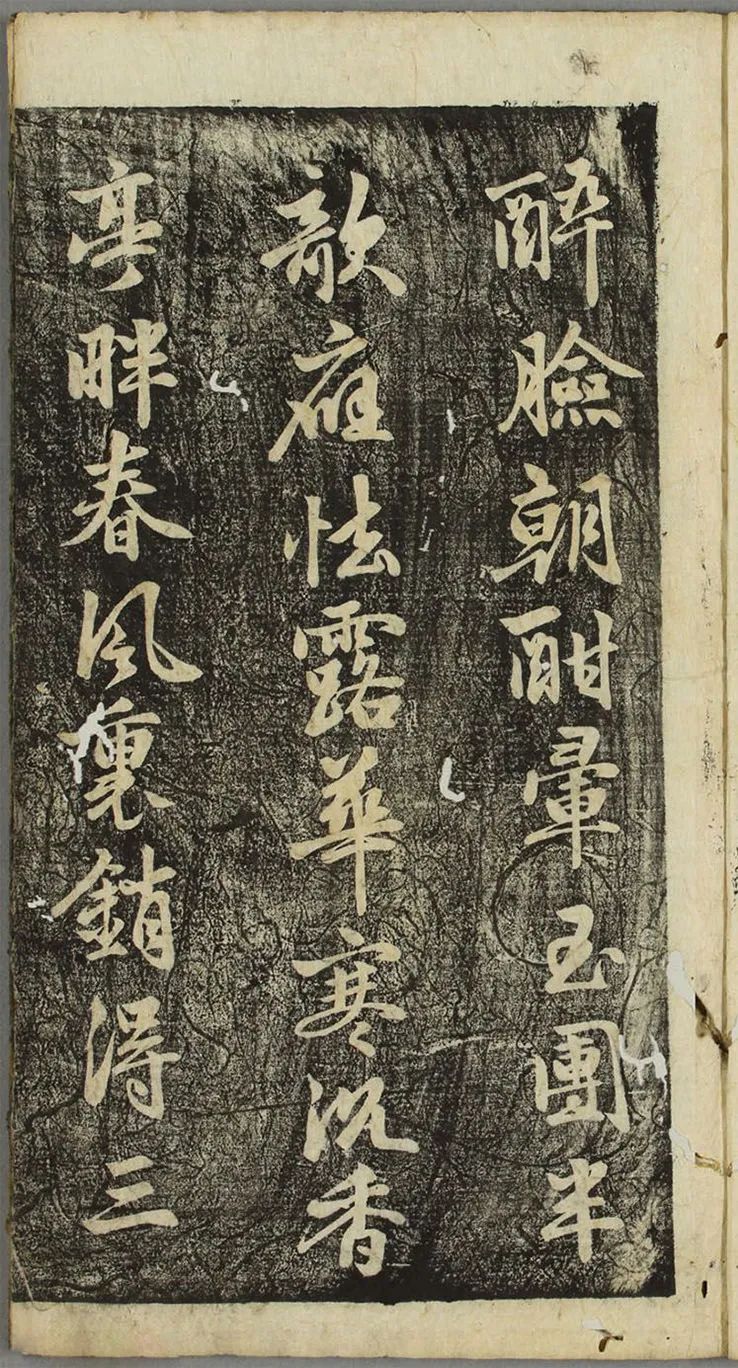 酔臉朝酣暈玉團半
欹應怯露華寒沉香
亭畔春風裏銷得三